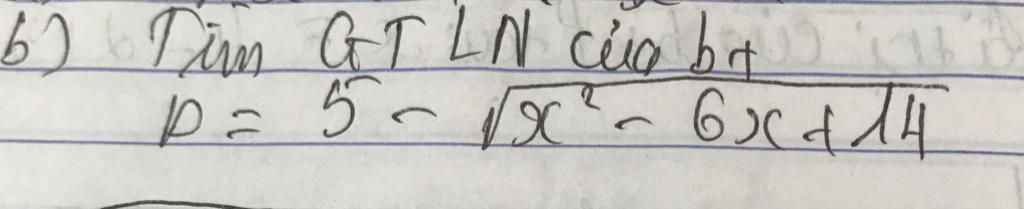 b) Tìm GTLN của bt
P = 5 - √x² - 6x + 14